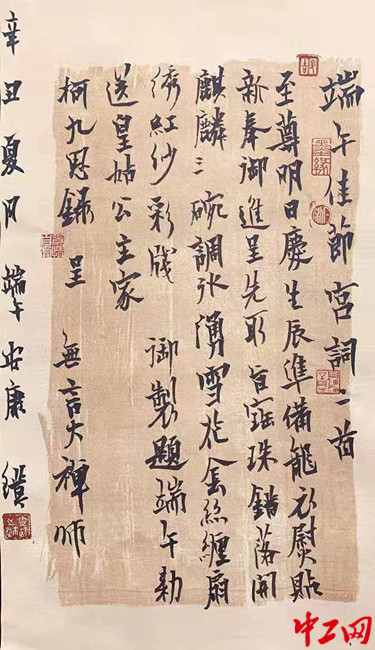 端午佳節宮詞二首
至尊明日慶生辰準備龍衣熨貼
新奉御進呈先取旨珠錯落間
麒麟碗調冰湧雪花金絲纏扇
綉紅紗彩牋 御製題端午勅
送皇姑公主家
柯九思錄呈 無言大禪師
辛丑夏月端午安康
墨緣
中工网